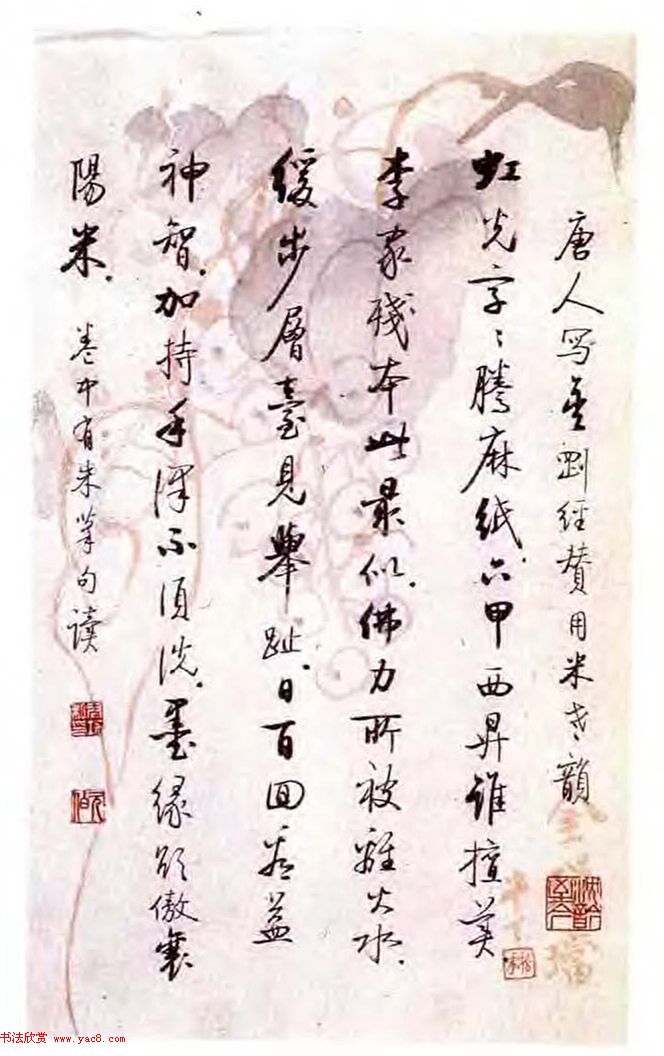 唐人写金刚经赞用米老韵
虹光字〻腾麻纸六甲西昇谁擅美
李家残本此最似佛力所被离火水
缓步层台见举趾日百回看益
神智加持手泽不须洗墨缘欲傲襄
阳米
卷中有朱笔句读
书法欣赏 www.yac8.com